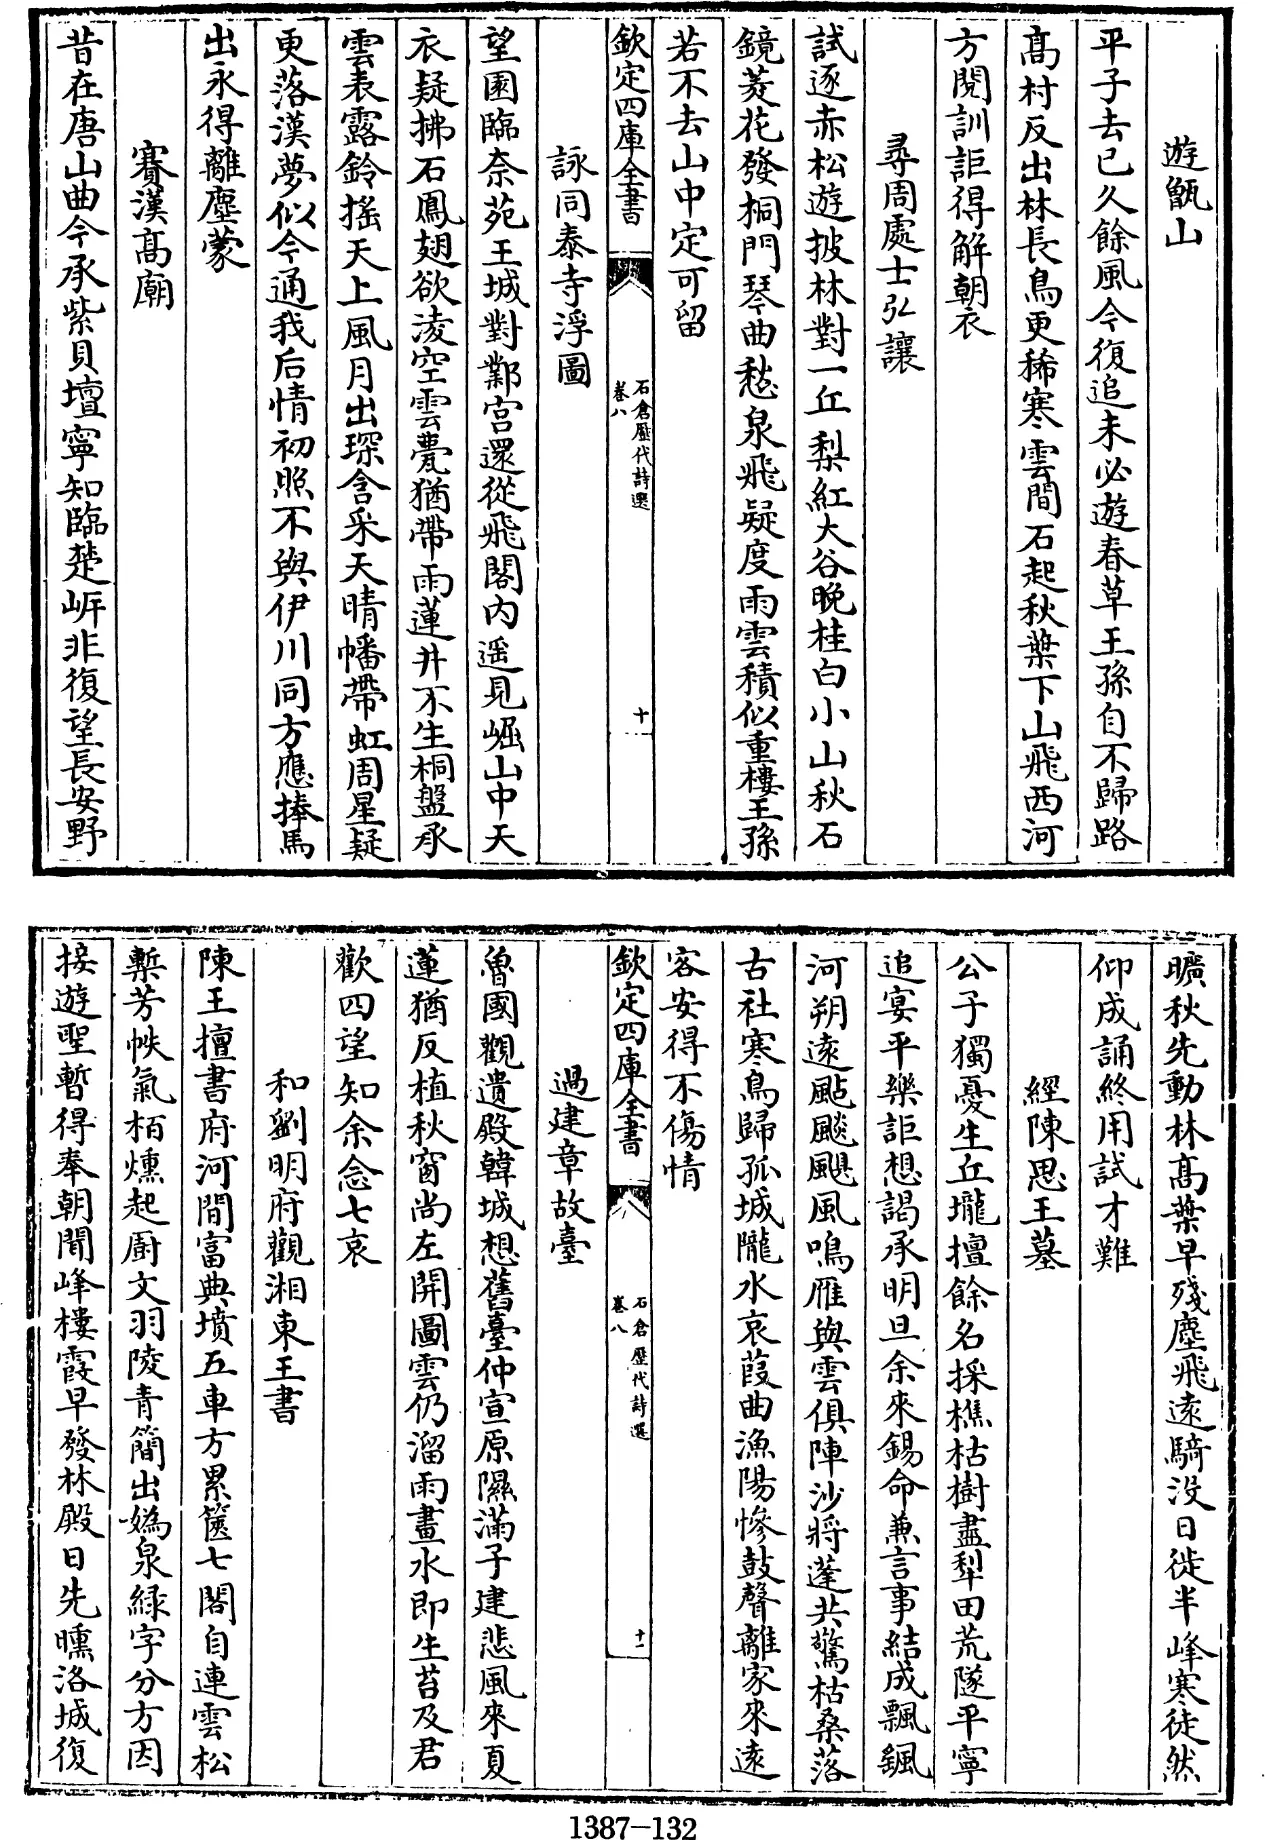 遊甑山
平子去已久餘風今復追未必遊春草王孫自不歸路
髙村反出林長鳥更稀寒雲間石起秋葉下山飛西河
方閲訓詎得解朝衣
尋周處士弘讓
試逐赤松遊披林對一丘梨紅大谷晚桂白小山秋石
鏡菱花發桐門琴曲愁泉飛疑度雨雲積似重樓王孫
若不去山中定可留
欽定四庫全書
石倉歷代詩選
卷八
十
詠同泰寺浮圖
望園臨奈苑王城對鄴宮還從飛閣内遥見崛山中天
衣疑拂石鳳翅欲淩空雲甍猶帶雨蓮井不生桐盤承
雲表露鈴搖天上風月出琛含采天晴幡帶虹周星疑
更落漢夢似今通我后情初照不與伊川同方應捧馬
出永得離塵蒙
賽漢髙廟
昔在唐山曲今承紫貝壇寧知臨楚岍非復望長安野
曠秋先動林髙葉早殘塵飛逺騎没日徙半峰寒徒然
仰成誦終用試才難
經陳思王墓
公子獨憂生丘壠擅餘名採樵枯樹盡犁田荒隧平寧
追宴平樂詎想謁承明旦余來錫命兼言事結成飄颻
河朔逺颭飈颶風鳴雁與雲俱陣沙將蓬共驚枯桑落
古社寒鳥歸孤城隴水哀葭曲漁陽慘鼓聲離家來逺
客安得不傷情
欽定四庫全書
石倉歷代詩選
卷八
十一
過建章故臺
魯國觀遺殿韓城想舊臺仲宣原隰滿子建悲風來夏
蓮猶反植秋窗尚左開圖雲仍溜雨畫水即生苔及君
歡四望知余念七哀
和劉明府觀湘東王書
陳王擅書府河間富典墳五車方累篋七閣自連雲松
槧芳帙氣栢燻起廚文羽陵青簡出媯泉緑字分方因
接遊聖暫得奉朝聞峰樓霞早發林殿日先曛洛城復
1387—132